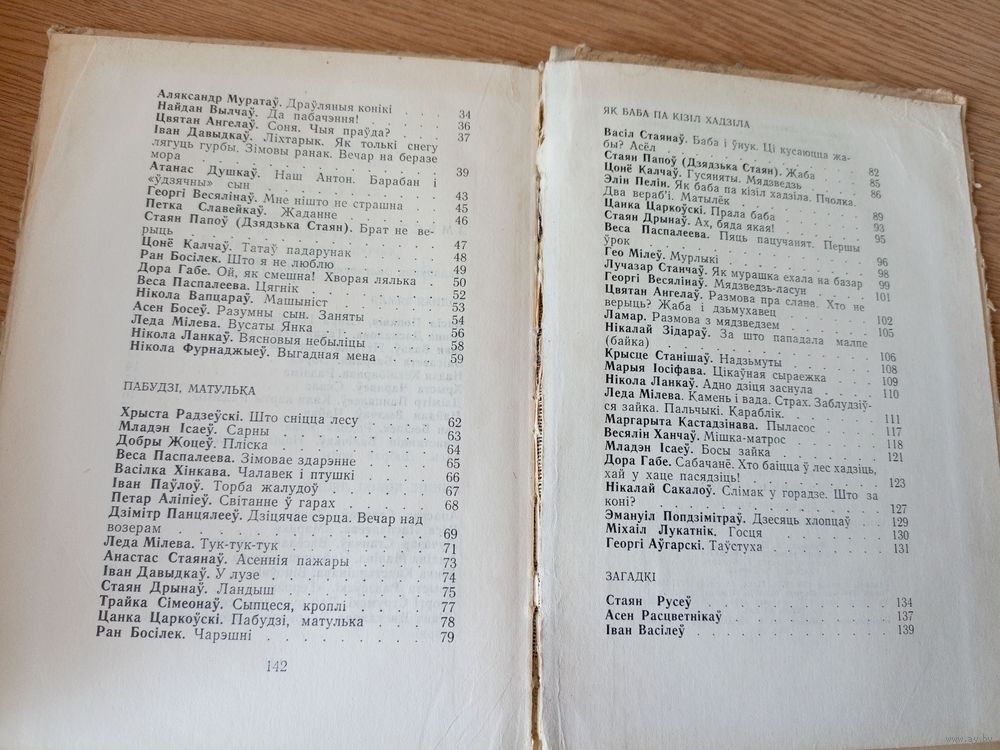 Аляксандр Муратаў. Драўляныя конікі . . . 34
Найдан Вылчаў. Да пабачэння! . . . . 36
Цвятан Ангелаў. Соня. Чыя праўда? . . . 37
Іван Давыдкаў. Ліхтарык. Як толькі снегу
лягуць гурбы. Зімовы ранак. Вечар на беразе
мора . . . . . . . . . . 39
Атанас Душкаў. Наш Антон. Барабан і
«ўдзячны» сын . . . . . . . 43
Георгі Весялінаў. Мне нішто не страшна . . 45
Петка Славейкаў. Жаданне . . . . . 46
Стаян Папоў (Дзядзька Стаян). Брат не ве-
рыць . . . . . . . . . . 47
Цонё Калчаў. Татаў падарунак . . . . 48
Ран Босілек. Што я не люблю . . . . 49
Дора Габе. Ой, як смешна! Хворая лялька . 50
Веса Паспалеева. Цягнік . . . . . . 52
Нікола Вапцараў. Машыніст . . . . . 53
Асен Босеў. Разумны сын. Заняты . . . 54
Леда Мілева. Вусаты Янка . . . . . 56
Нікола Ланкаў. Вясновыя небыліцы . . . 58
Нікола Фурнаджыеў. Выгадная мена . . . 59
ПАБУДЗІ, МАТУЛЬКА
Хрыста Радзеўскі. Што сніцца лесу . . . 62
Младэн Ісаеў. Сарны . . . . . . . 63
Добры Жоцеў. Пліска . . . . . . . 64
Веса Паспалеева. Зімовае здарэнне . . . 65
Васілка Хінкава. Чалавек і птушкі . . . 66
Іван Паўлоў. Торба жалудоў . . . . . 67
Петар Аліпіеў. Світанне ў гарах . . . . 68
Дзімітр Панцялееў. Дзіцячае сэрца. Вечар над
возерам . . . . . . . . . . 69
Леда Мілева. Тук-тук-тук . . . . . . 71
Анастас Стаянаў. Асеннія пажары . . . . 73
Іван Давыдкаў. У лузе . . . . . . . 74
Стаян Дрынаў. Ландыш . . . . . . . 75
Трайка Сімеонаў. Сыпцеся, кроплі . . . . 77
Цанка Царкоўскі. Пабудзі, матулька . . . 78
Ран Босілек. Чарэшні . . . . . . . 79
142
ЯК БАБА ПА КІЗІЛ ХАДЗІЛА
Васіл Стаянаў. Баба і ўнук. Ці кусаюцца жа-
бы? Асёл . . . . . . . . . 82
Стаян Папоў (Дзядзька Стаян). Жаба . . 85
Цонё Калчаў. Гусяняты. Мядзведзь . . . 86
Элін Пелін. Як баба па кізіл хадзіла. Пчолка.
Два вераб'і. Матылёк . . . . . . 89
Цанка Царкоўскі. Прала баба . . . . . 93
Стаян Дрынаў. Ах, бяда якая! . . . . . 95
Веса Паспалеева. Пяць пацучанят. Першы
ўрок . . . . . . . . . . 96
Гео Мілеў. Мурлыкі . . . . . . . 98
Лучазар Станчаў. Як мурашка ехала на базар 99
Георгі Весялінаў. Мядзведзь-ласун . . . . 101
Цвятан Ангелаў. Размова пра слане. Хто не
верыць? Жаба і дзьмухавец . . . . . 102
Ламар. Размова з мядзведзем . . . . . 105
Нікалай Зідараў. За што пападала малпе
(байка) . . . . . . . . . 106
Крысце Станішаў. Надзьмуты . . . . . 108
Марыя Іосіфава. Цікаўная сыраежка . . . 109
Нікола Ланкаў. Адно дзіця заснула . . . . 110
Леда Мілева. Камень і вада. Страх. Заблудзіў-
ся зайка. Пальчыкі. Караблік. . . . . 111
Маргарыта Кастадзінава. Пыласос . . . . 117
Весялін Ханчаў. Мішка-матрос . . . . . 118
Младэн Ісаеў. Босы зайка . . . . . . 121
Дора Габе. Сабачанё. Хто баіцца ў лес хадзіць,
хай у хаце пасядзіць! . . . . . . 123
Нікалай Сакалоў. Слімак у горадзе. Што за
коні? . . . . . . . . . . 127
Эмануіл Попдзімітраў. Дзесяць хлопцаў . . 129
Міхаіл Лукатнік. Госця . . . . . . . 130
Георгі Аўгарскі. Таўстуха . . . . . . 131
ЗАГАДКІ
Стаян Русеў . . . . . . . . . 134
Асен Расцветнікаў . . . . . . . . 137
Іван Васілеў . . . . . . . . . 139
www.av.by